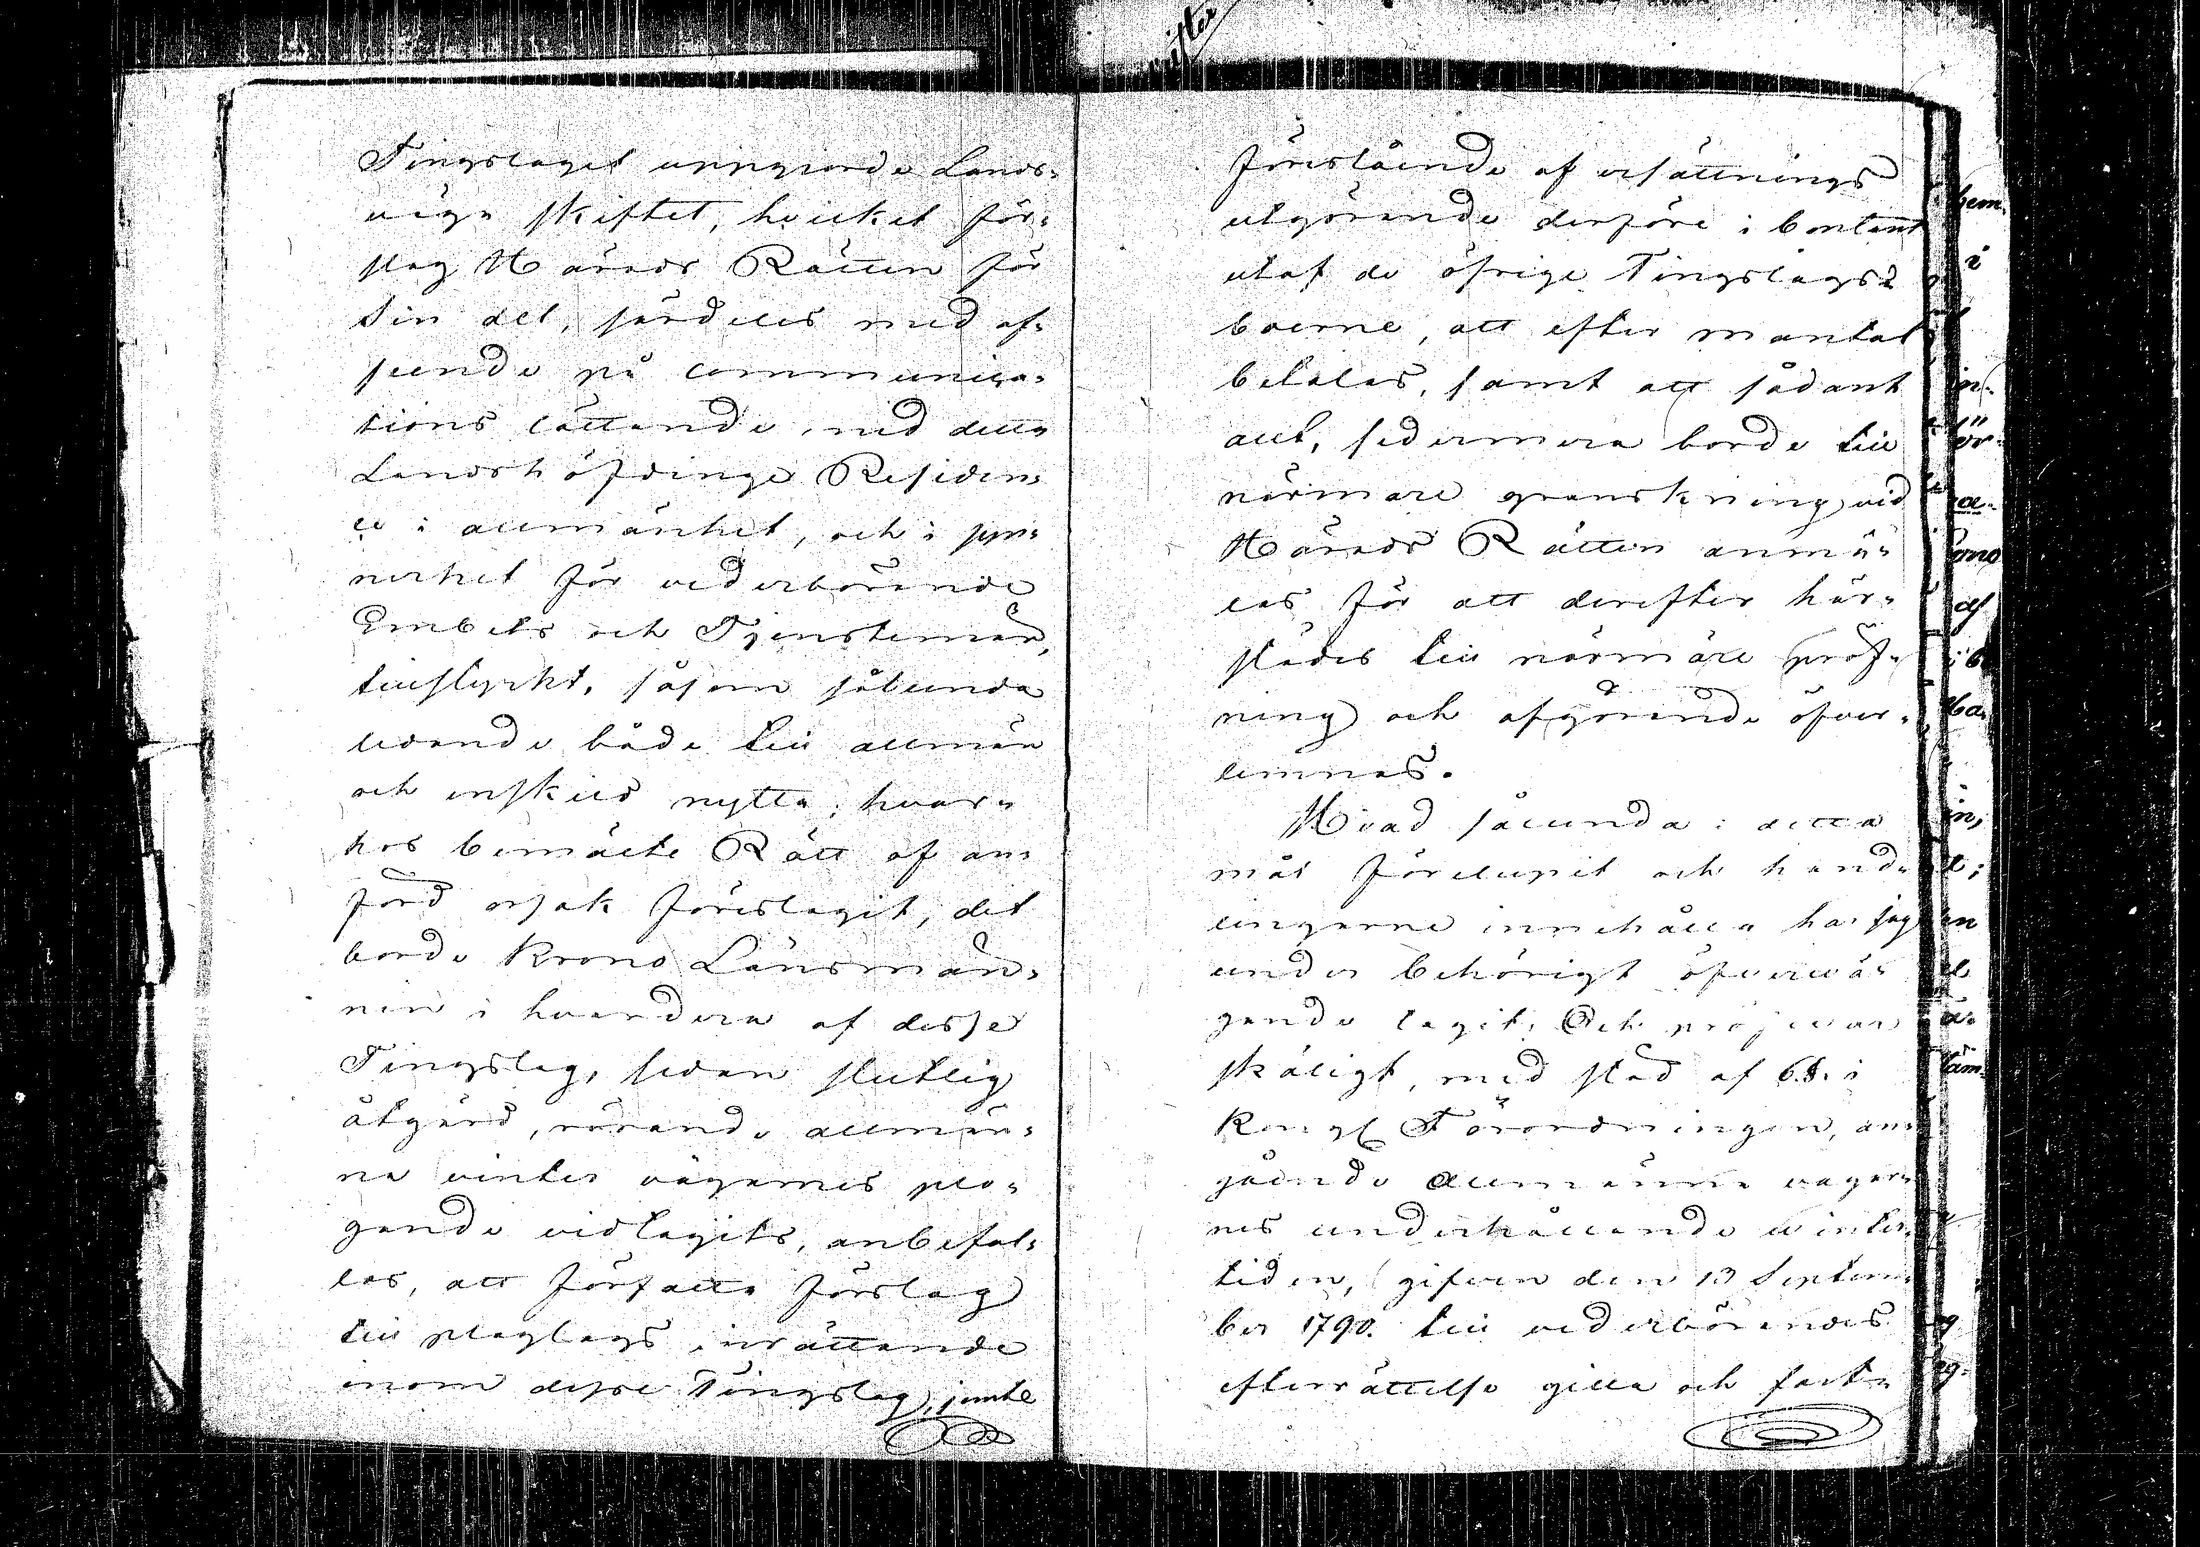 Tingslaget uppgjorde Lands-
vägs skiftet, hvilket för-
slag Härads Rätten för
sin del, särdeles med af-
seende på communica-
tions lättande, med detta
Landshöfdinge Residen-
ce i allmänhet, och i syn-
nerhet för vederbörande
Embets och Tjenstemän,
tillstyrkt, såsom sålunda
ledande både till allmän
och enskild nytta; hvar-
hos bemälte Rätt af an-
förd orsak föreslagit, det
borde Krono Länsmän-
nen i hvardera af desse
Tingslag, sedan slutlig
åtgärd, rörande allmän-
na vinter vägarnes plo-
gande vidtagits, anbefal-
las, att författa förslag
till ploglags inrättande
inom desse Tingslag, jemte
föreslående af ersättnings
utgörande derföre i contant
utaf de öfrige Tingslags-
boerne, att efter mantal
betalas, samt att sådant
allt, sedermera borde till
närmare granskning vid
Härads Rätten anmä-
las för att derefter här-
städes till närmare pröf-
ning och afgörande öfver-
lemnas.
Hvad sålunda i detta
mål förelupit och hand-
lingarne innehålla har jag
under behörigt öfvervä-
gande tagit, Och pröfvar
skäligt, med stöd af 6 §. i
Kongl Förordningen, an-
gående allmänna vägar-
nes underhållande winter-
tiden, gifven den 13 Septem-
ber 1790. till vederbörandes
efterrättelse gilla och fast-